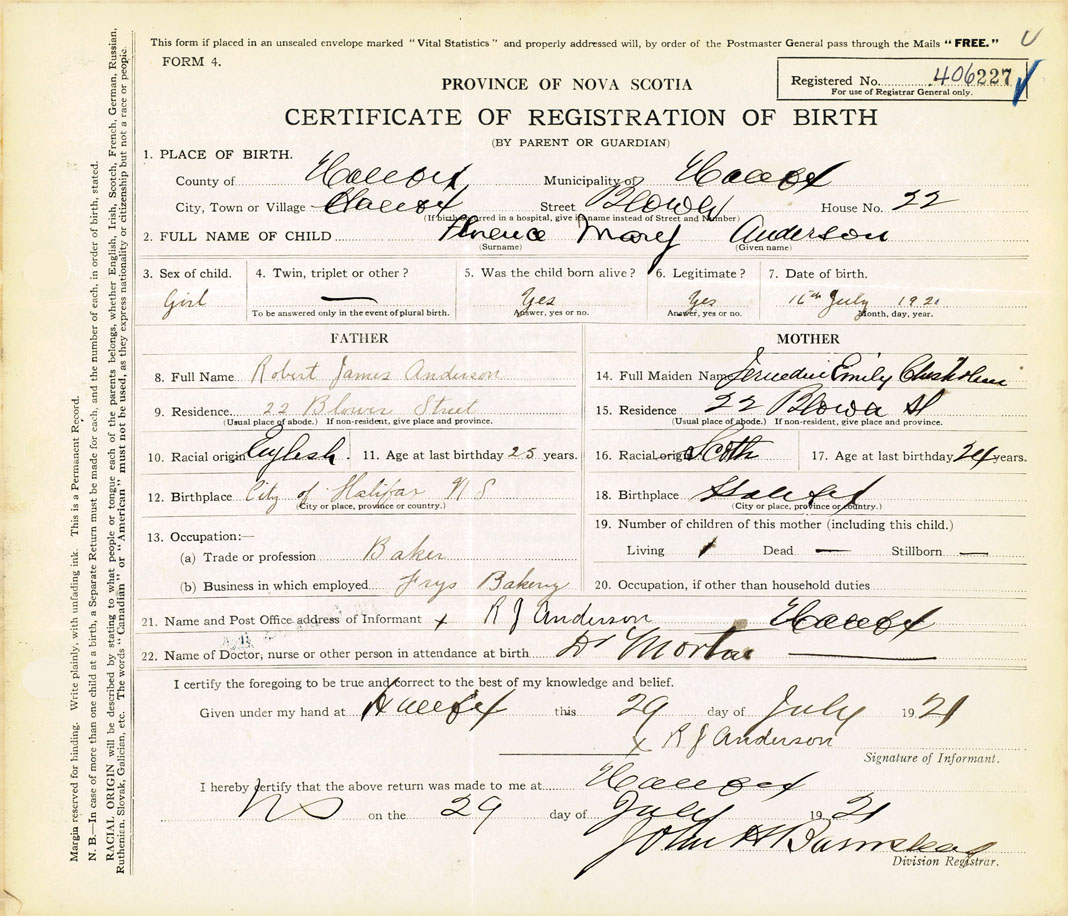 This form if placed in an unsealed envelope marked "Vital Statistics" and properly addressed will, by order of the Postmaster General pass through the Mails "FREE."
FORM 4.
Registered No. 406227
For use of Registrar General only.
PROVINCE OF NOVA SCOTIA
CERTIFICATE OF REGISTRATION OF BIRTH
(BY PARENT OR GUARDIAN)
1. PLACE OF BIRTH.
County of Halifax Municipality of Halifax
City, Town or Village Halifax Street Blowers House No. 22
(If birth occurred in a hospital, give its name instead of Street and Number)
2. FULL NAME OF CHILD Florence Mary Anderson
(Surname) (Given name)
3. Sex of child. 4. Twin, triplet or other? 5. Was the child born alive? 6. Legitimate? 7. Date of birth.
Girl — Yes Yes July 1921
To be answered only in the event of plural birth. Answer, yes or no. Answer, yes or no. Month, day, year.
FATHER MOTHER
8. Full Name Robert James Anderson
14. Full Maiden Name Emily
9. Residence 22 Blowers Street
15. Residence 22 Blowers St
(Usual place of abode.) If non-resident, give place and province.
(Usual place of abode.) If non-resident, give place and province.
10. Racial origin English. 11. Age at last birthday 25 years.
16. Racial origin Scotch 17. Age at last birthday 24 years.
12. Birthplace City of Halifax N S
18. Birthplace Halifax
(City or place, province or country.)
(City or place, province or country.)
13. Occupation:—
19. Number of children of this mother (including this child.)
(a) Trade or profession Baker
Living 1 Dead — Stillborn —
(b) Business in which employed Frys Bakery
20. Occupation, if other than household duties
21. Name and Post Office address of Informant x R J Anderson Halifax
22. Name of Doctor, nurse or other person in attendance at birth Dr Morton
I certify the foregoing to be true and correct to the best of my knowledge and belief.
Given under my hand at Halifax this 29 day of July 1921
x R J Anderson
Signature of Informant.
I hereby certify that the above return was made to me at Halifax
NS on the 29 day of July 1921
John H Barnstead
Division Registrar.
Margin reserved for binding. Write plainly, with unfading ink. This is a Permanent Record.
N. B.—In case of more than one child at a birth, a Separate Return must be made for each, and the number of each, in order of birth, stated.
RACIAL ORIGIN will be described by stating to what people or tongue each of the parents belongs, whether English, Irish, Scotch, French, German, Russian,
Ruthenian, Slovak, Galician, etc. The words "Canadian" or "American" must not be used, as they express nationality or citizenship but not a race or people.